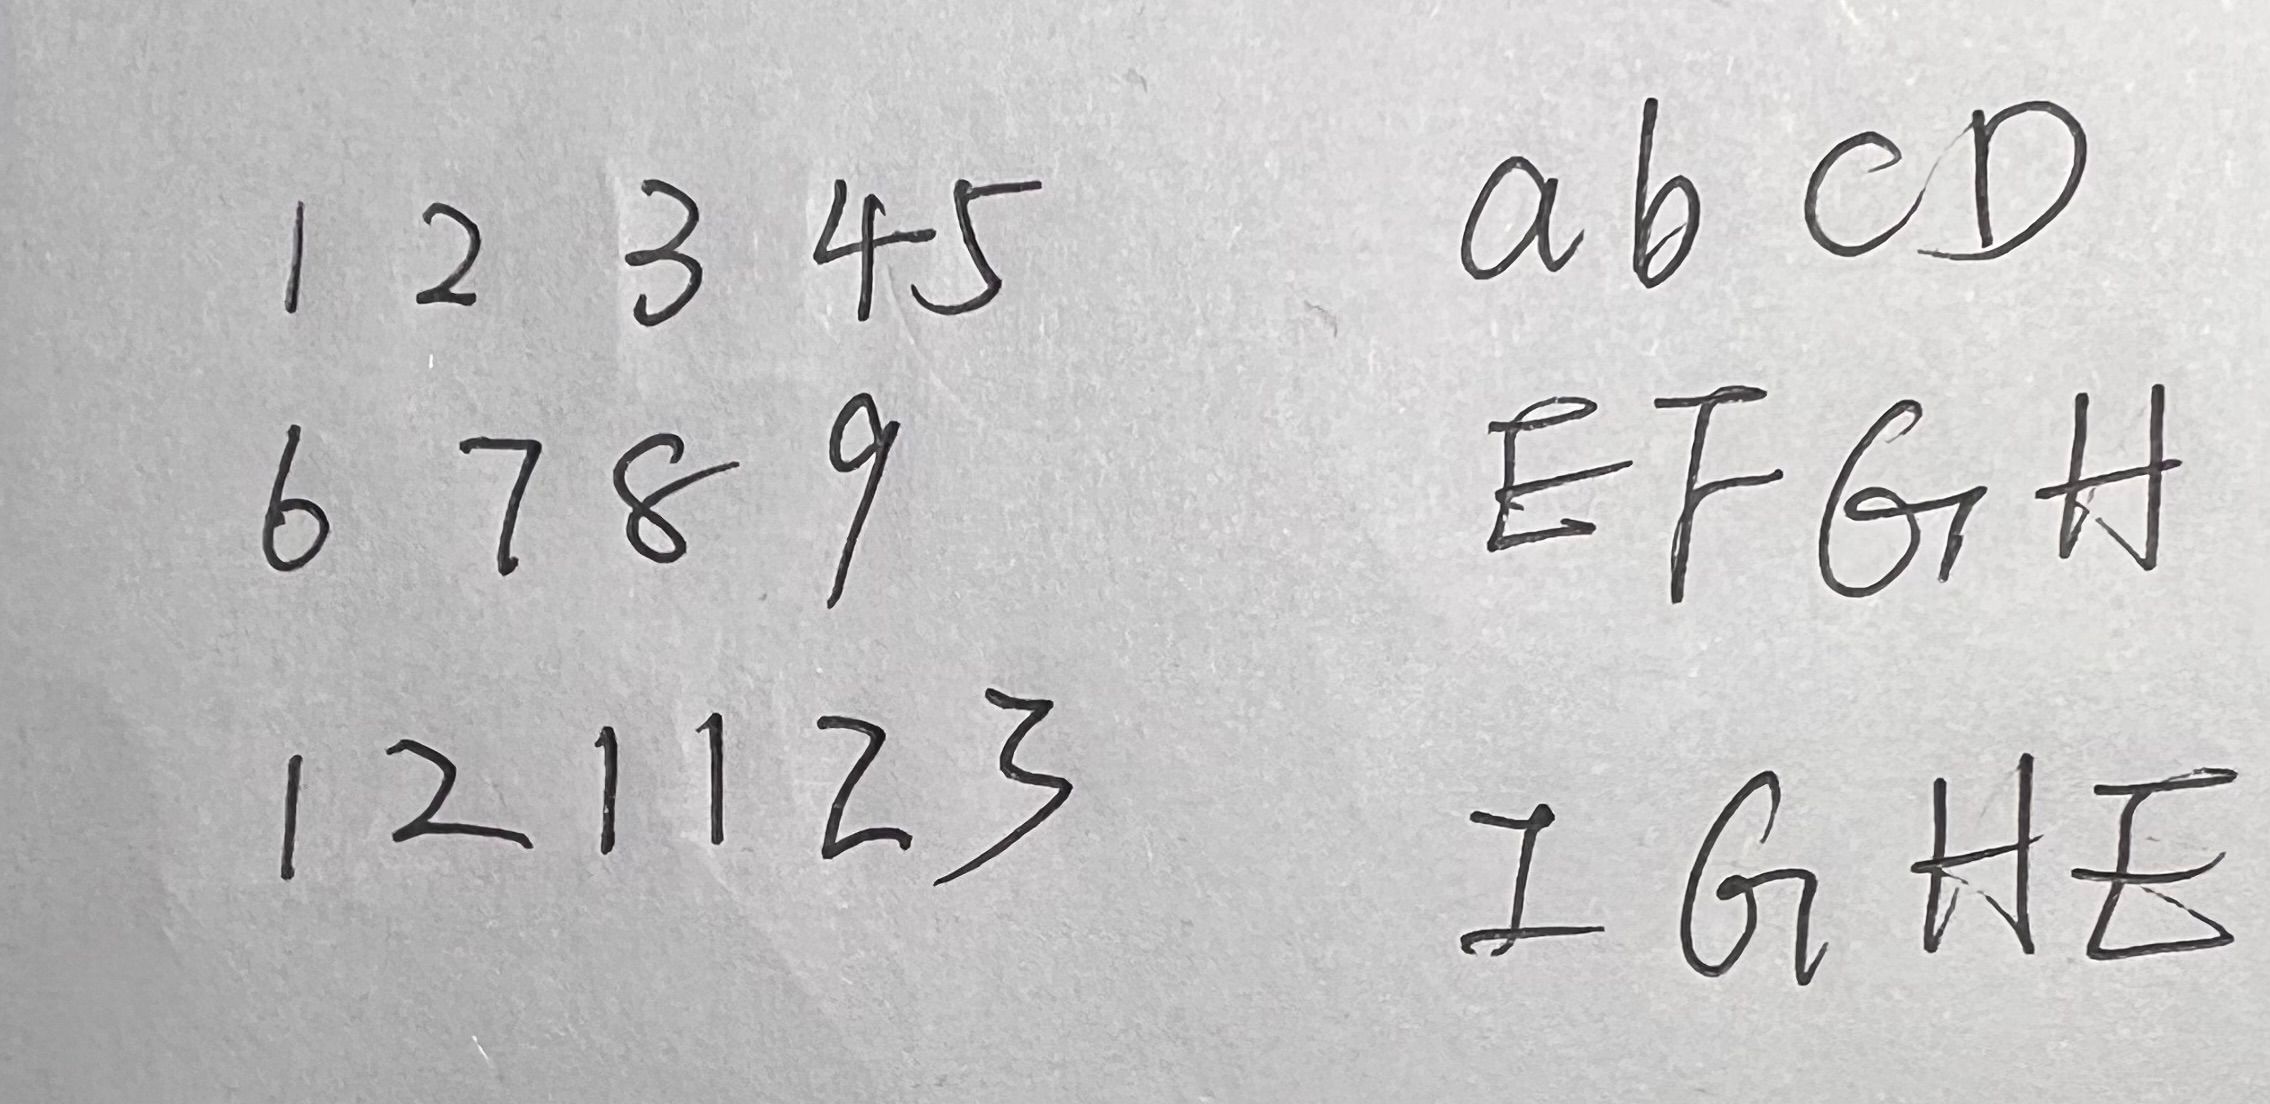 1 2 3 4 5
6 7 8 9
1 2 1 1 2 3
a b c D
E F G H
I G H E